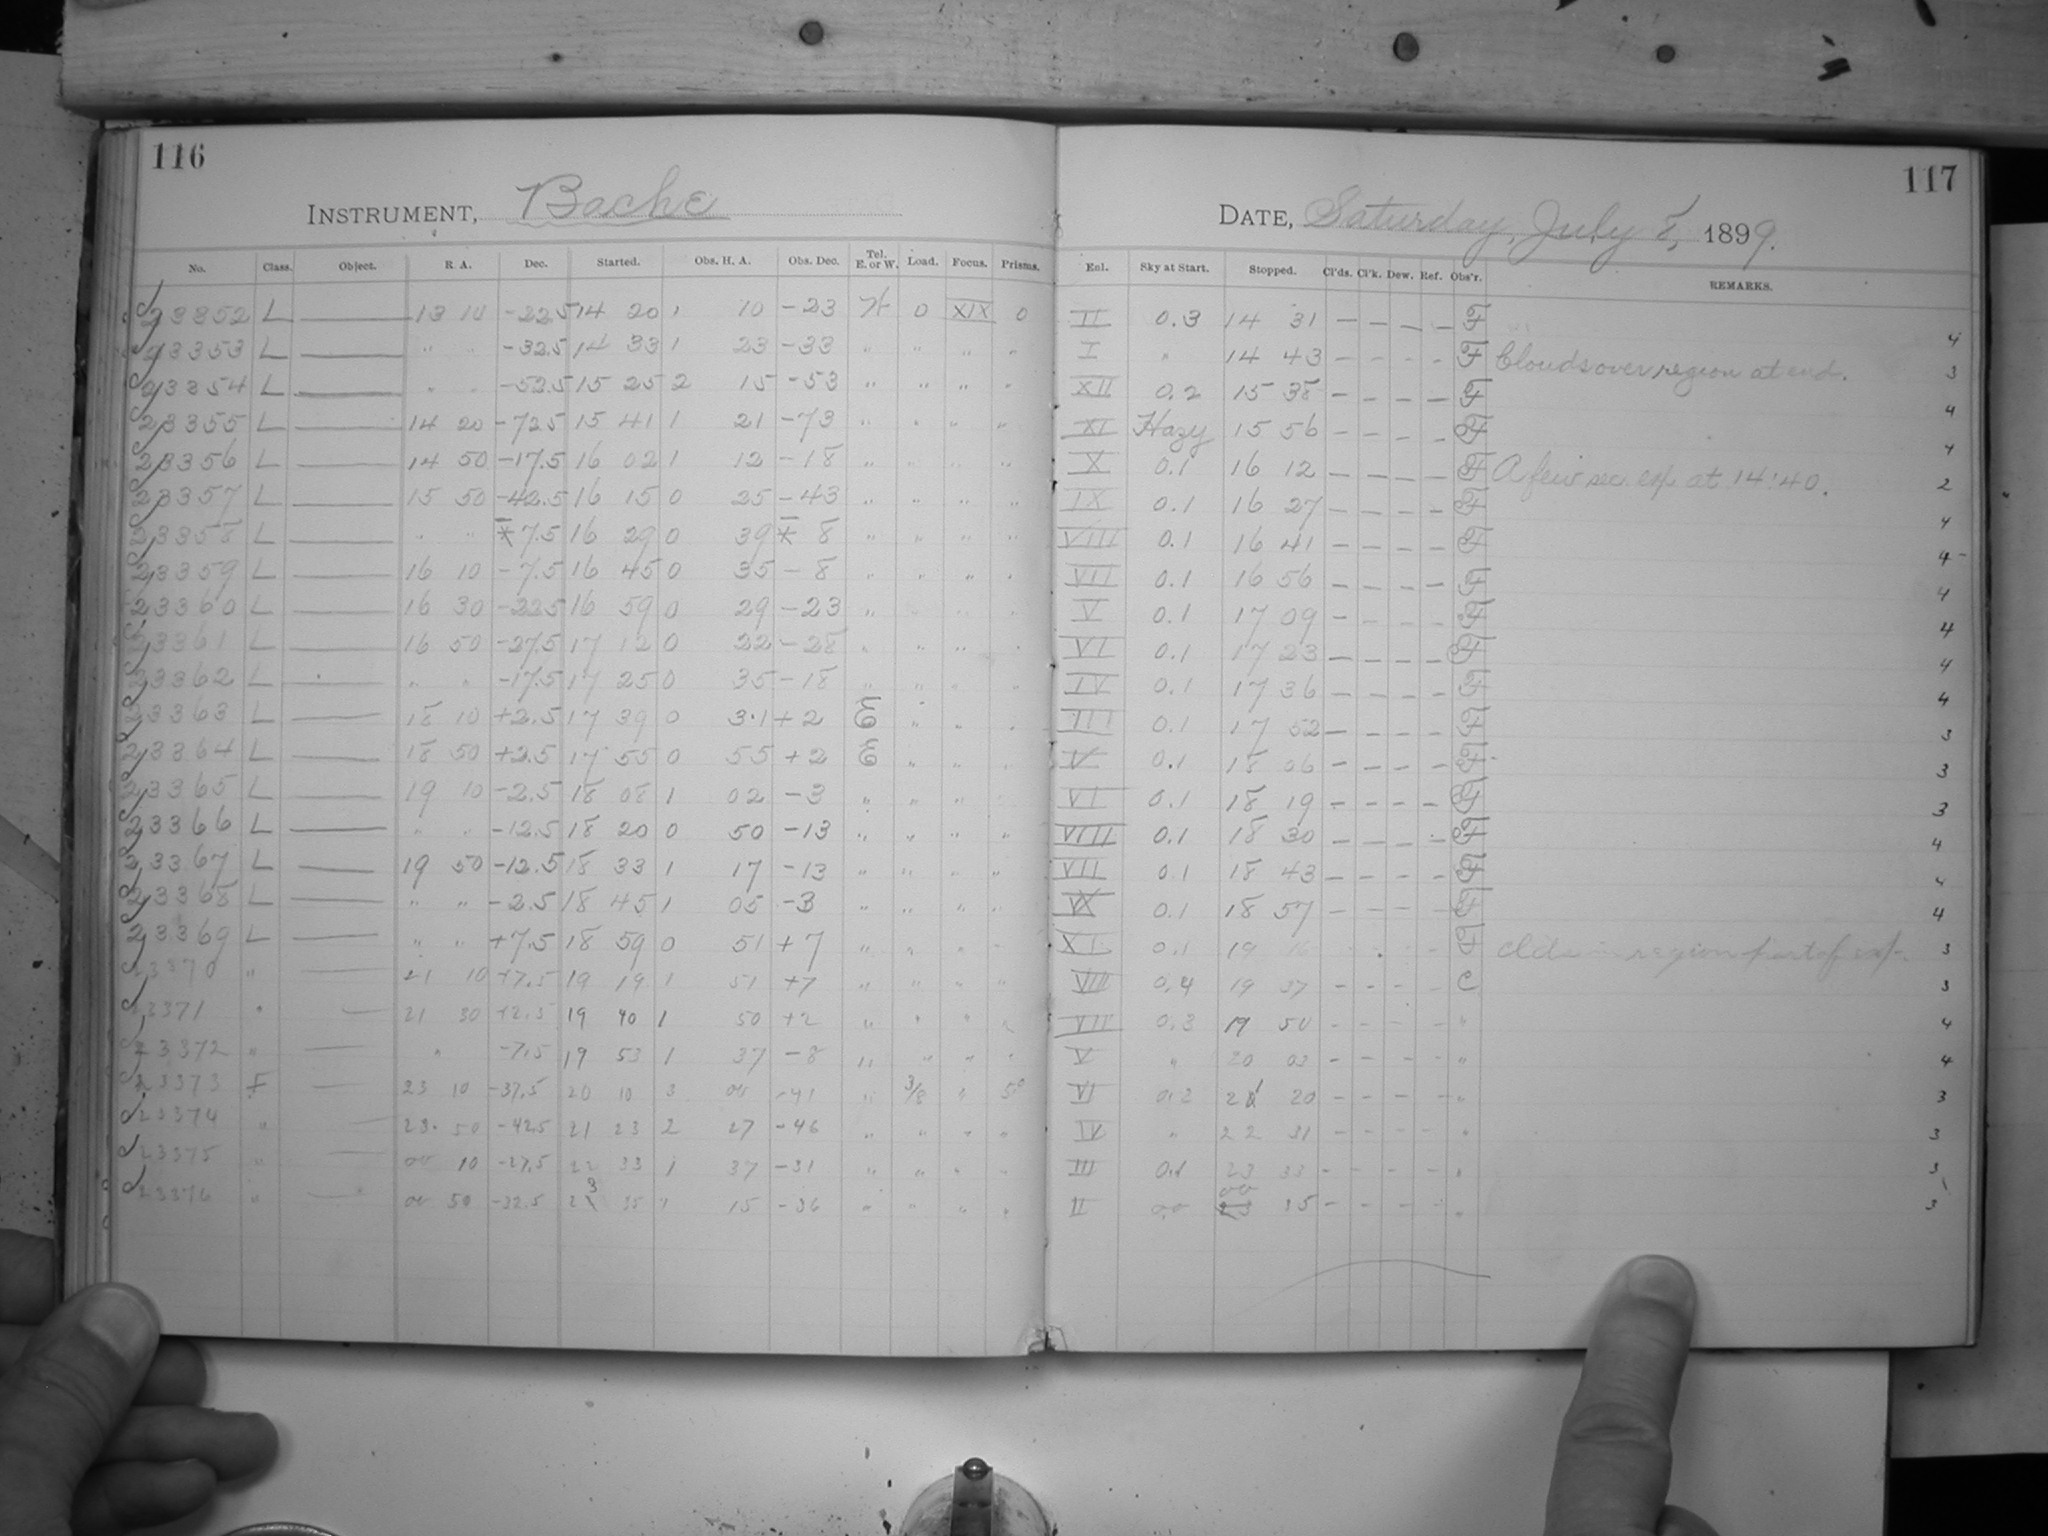 116
INSTRUMENT, Bache
No. Class. Object. R. A. Dec. Started. Obs. H. A. Obs. Dec. Tel. E. or W. Load. Focus. Prisms.
23352 L —— 13 10 -22.5 14 20 1 10 -23 W 0 XIX 0
23353 L —— " " -32.5 14 33 1 23 -33 " " " "
23354 L —— " " -52.5 15 25 2 15 -53 " " " "
23355 L —— 14 20 -72.5 15 41 1 21 -73 " " " "
23356 L —— 14 50 -17.5 16 02 1 12 -18 " " " "
23357 L —— 15 50 -42.5 16 15 0 25 -43 " " " "
23358 L —— " " -7.5 16 29 0 39 - 8 " " " "
23359 L —— 16 10 -7.5 16 45 0 35 -8 " " " "
23360 L —— 16 30 -22.5 16 59 0 29 -23 " " " "
23361 L —— 16 50 -27.5 17 12 0 22 -28 " " " "
23362 L —— " " -17.5 17 25 0 35 -18 " " " "
23363 L —— 18 10 +2.5 17 39 0 31 +2 E " " "
23364 L —— 18 50 +2.5 17 55 0 55 +2 E " " "
23365 L —— 19 10 -2.5 18 08 1 02 -3 " " " "
23366 L —— " " -12.5 18 20 0 50 -13 " " " "
23367 L —— 19 50 -12.5 18 33 1 17 -13 " " " "
23368 L —— " " -2.5 18 45 1 05 -3 " " " "
23369 L —— " " +7.5 18 59 0 51 +7 " " " "
23370 " —— 21 10 +7.5 19 19 1 51 +7 " " " "
23371 " —— 21 30 +2.5 19 40 1 50 +2 " " "
23372 " —— " -7.5 19 53 1 37 -8 " " " "
23373 F —— 23 10 -37.5 20 10 3 00 -41 " 3/8 " 5°
23374 " —— 23 50 -42.5 21 23 2 27 -46 " " " "
23375 " —— 00 10 -27.5 22 33 1 37 -31 " " " "
23376 " —— 00 50 -32.5 23 35 " 15 -36 " " " "
117
DATE, Saturday, July 8, 1899.
Enl. Sky at Start. Stopped. Cl'ds. Cl'k. Dew. Ref. Obs'r. REMARKS.
II 0.3 14 31 — — — — F 4
I " 14 43 — — — — F Clouds over region at end. 3
XII 0.2 15 38 — — — — F 4
XI Hazy 15 56 — — — — F 4
X 0.1 16 12 — — — — F A few sec. exp. at 14:40. 2
IX 0.1 16 27 — — — — F 4
VIII 0.1 16 41 — — — — F 4
VII 0.1 16 56 — — — — F 4
V 0.1 17 09 — — — — F 4
VI 0.1 17 23 — — — — F 4
IV 0.1 17 36 — — — — F 4
III 0.1 17 52 — — — — F 3
V 0.1 18 06 — — — — F 3
VI 0.1 18 19 — — — — F 3
VIII 0.1 18 30 — — — — F 4
VII 0.1 18 43 — — — — F 4
IX 0.1 18 57 — — — — F 4
XI 0.1 19 16 F Clds in region part of exp. 3
VIII 0.4 19 37 - - - - C 3
VII 0.3 19 50 - - - - " 4
V " 20 03 - - - - " 4
VI 0.2 21 20 - - - - " 3
IV " 22 31 - - - - " 3
III 0.1 23 33 - - - - " 3
II 00 00 35 - - - - " 3